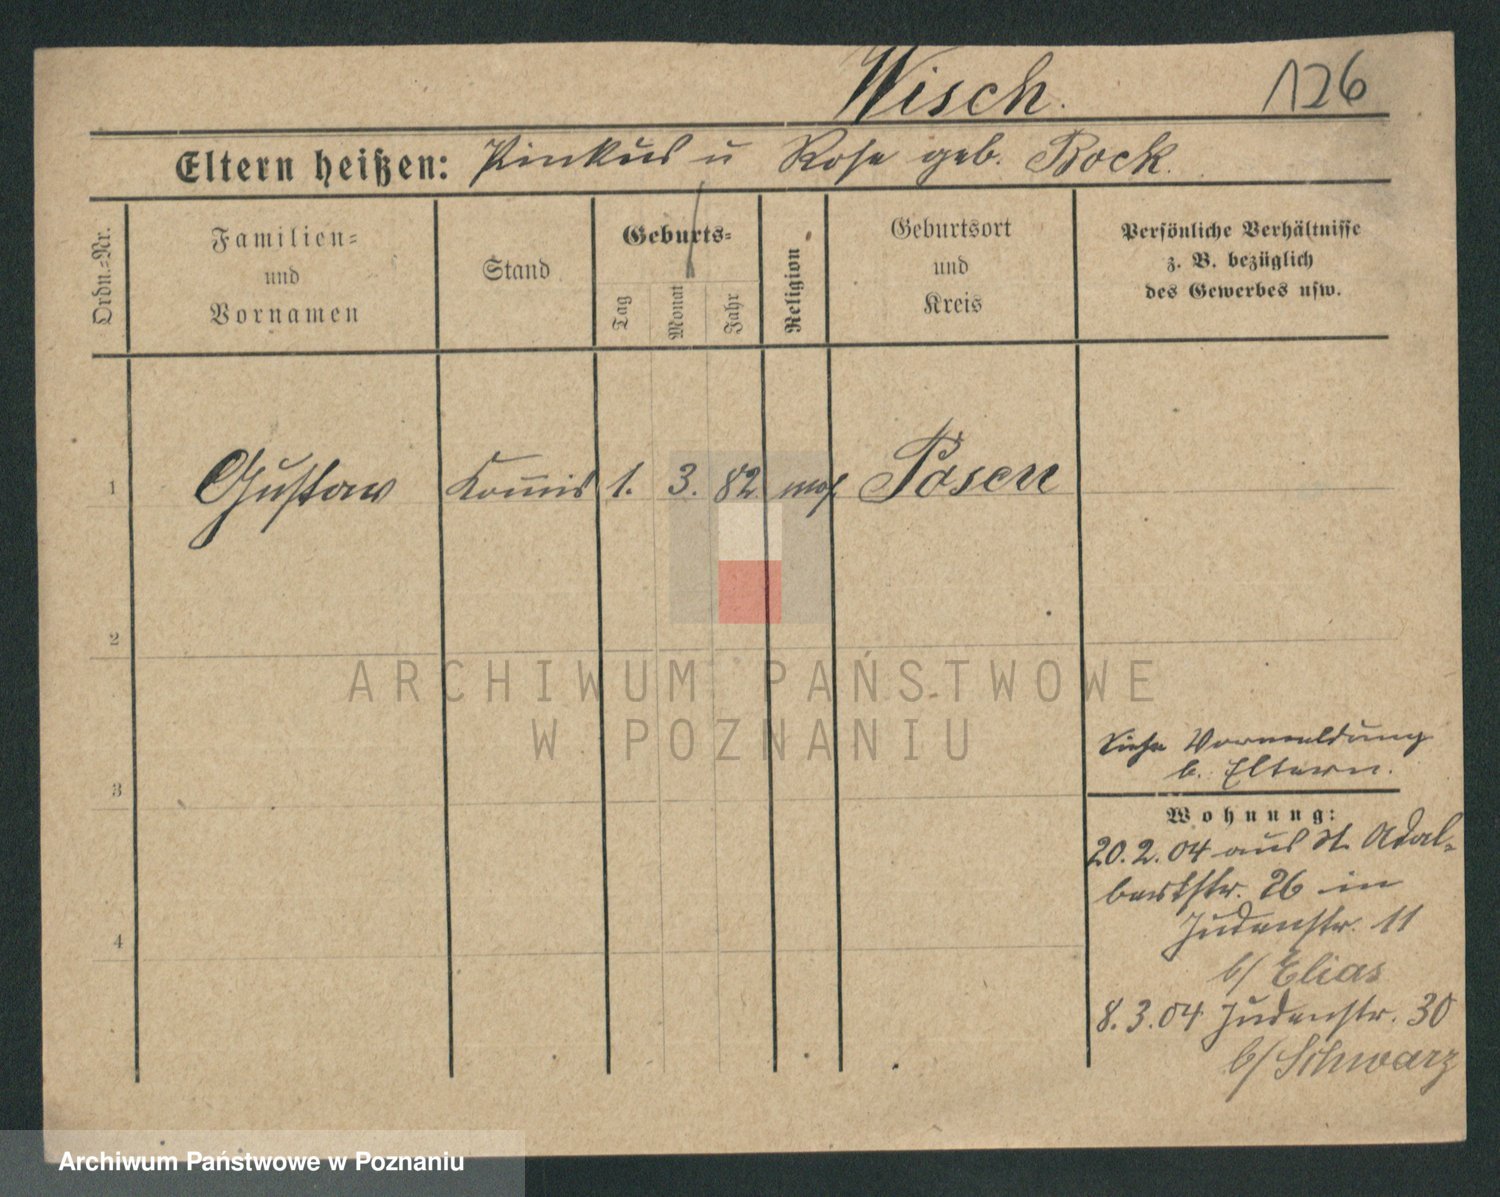 Wisch. 126
Eltern heißen: Pinkus u Rosa geb. Bock.
Ordn.-Nr.
Familien-
und
Vornamen
Stand
Geburts-
Tag
Monat
Jahr
Religion
Geburtsort
und
Kreis
Persönliche Verhältnisse
z. B. bezüglich
des Gewerbes usw.
1 Gustav Kommis 1. 3. 82 mos. Posen
2
3
4
Siehe Vormeldung
b. Eltern.
Wohnung:
20.2.04 aus St. Adal-
bertstr. 26 in
Judenstr. 11
b/ Elias
8.3.04 Judenstr. 30
b/ Schwarz
ARCHIWUM PAŃSTWOWE
W POZNANIU
Archiwum Państwowe w Poznaniu